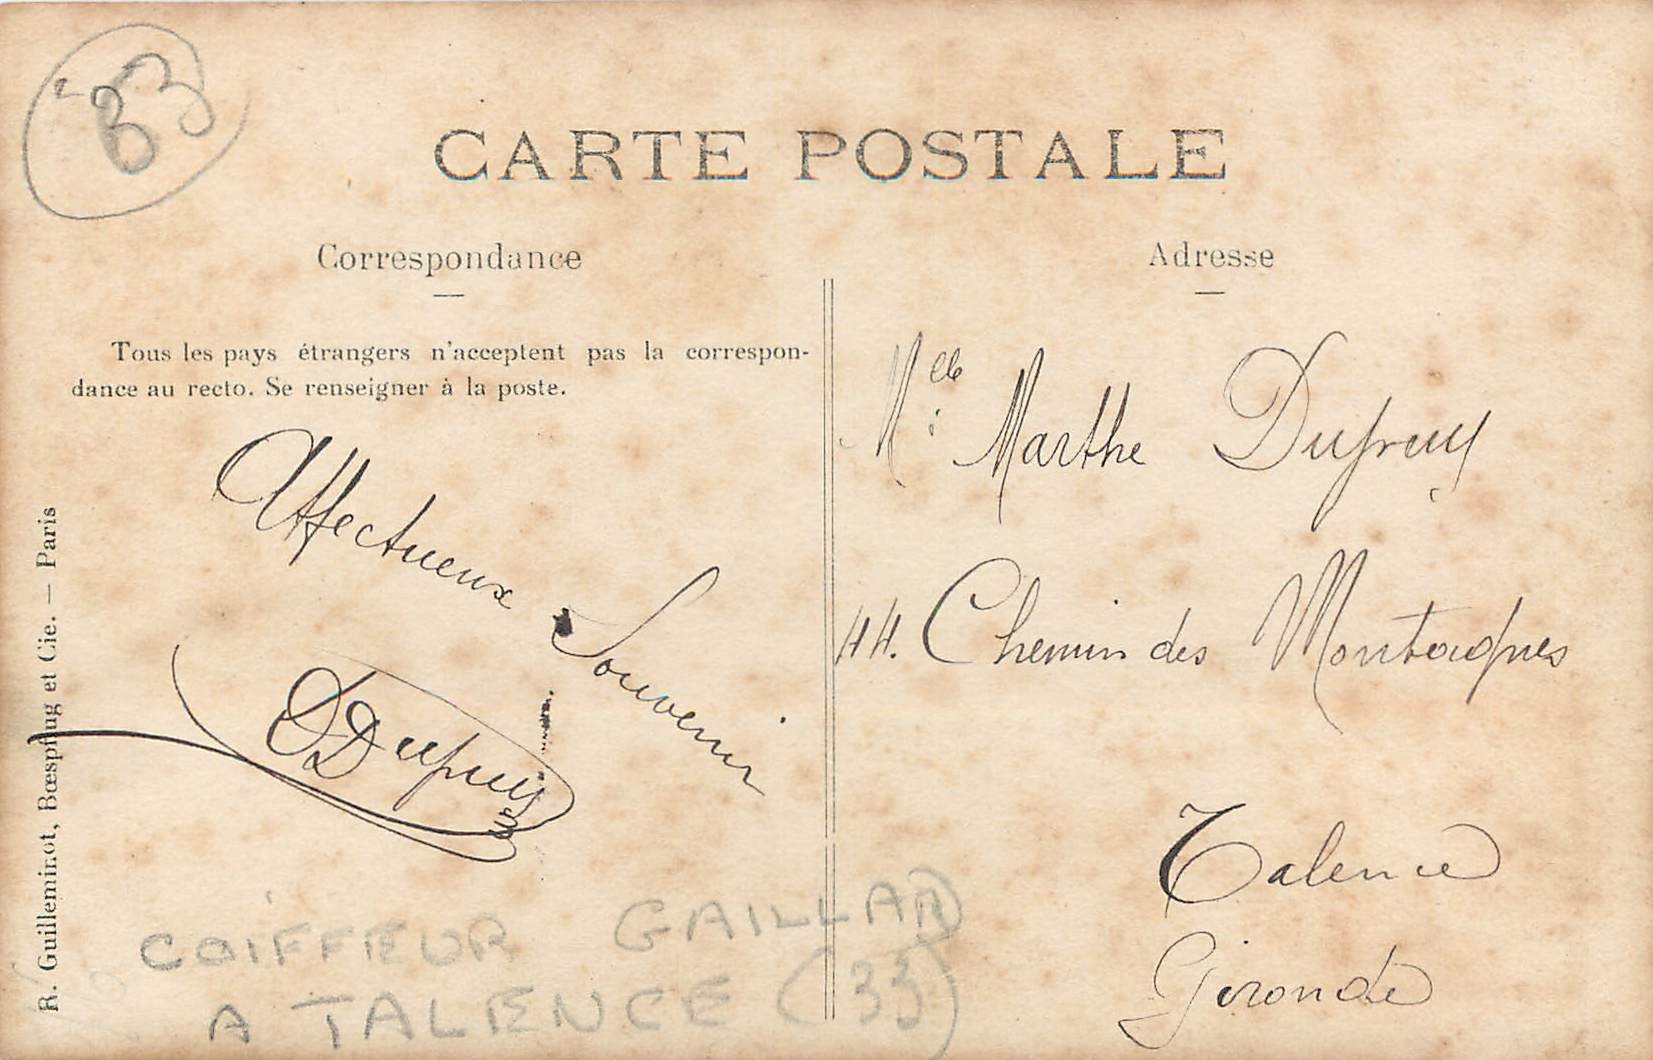 33
CARTE POSTALE
Correspondance
Tous les pays étrangers n'acceptent pas la correspon-
dance au recto. Se renseigner à la poste.
Affectueux Souvenir
Dupuy
R. Guilleminot, Bœspflug et Cie. — Paris
Adresse
Mlle Marthe Dupuy
44. Chemin des
Talence
Gironde
COIFFEUR GAILLARD
A TALENCE (33)